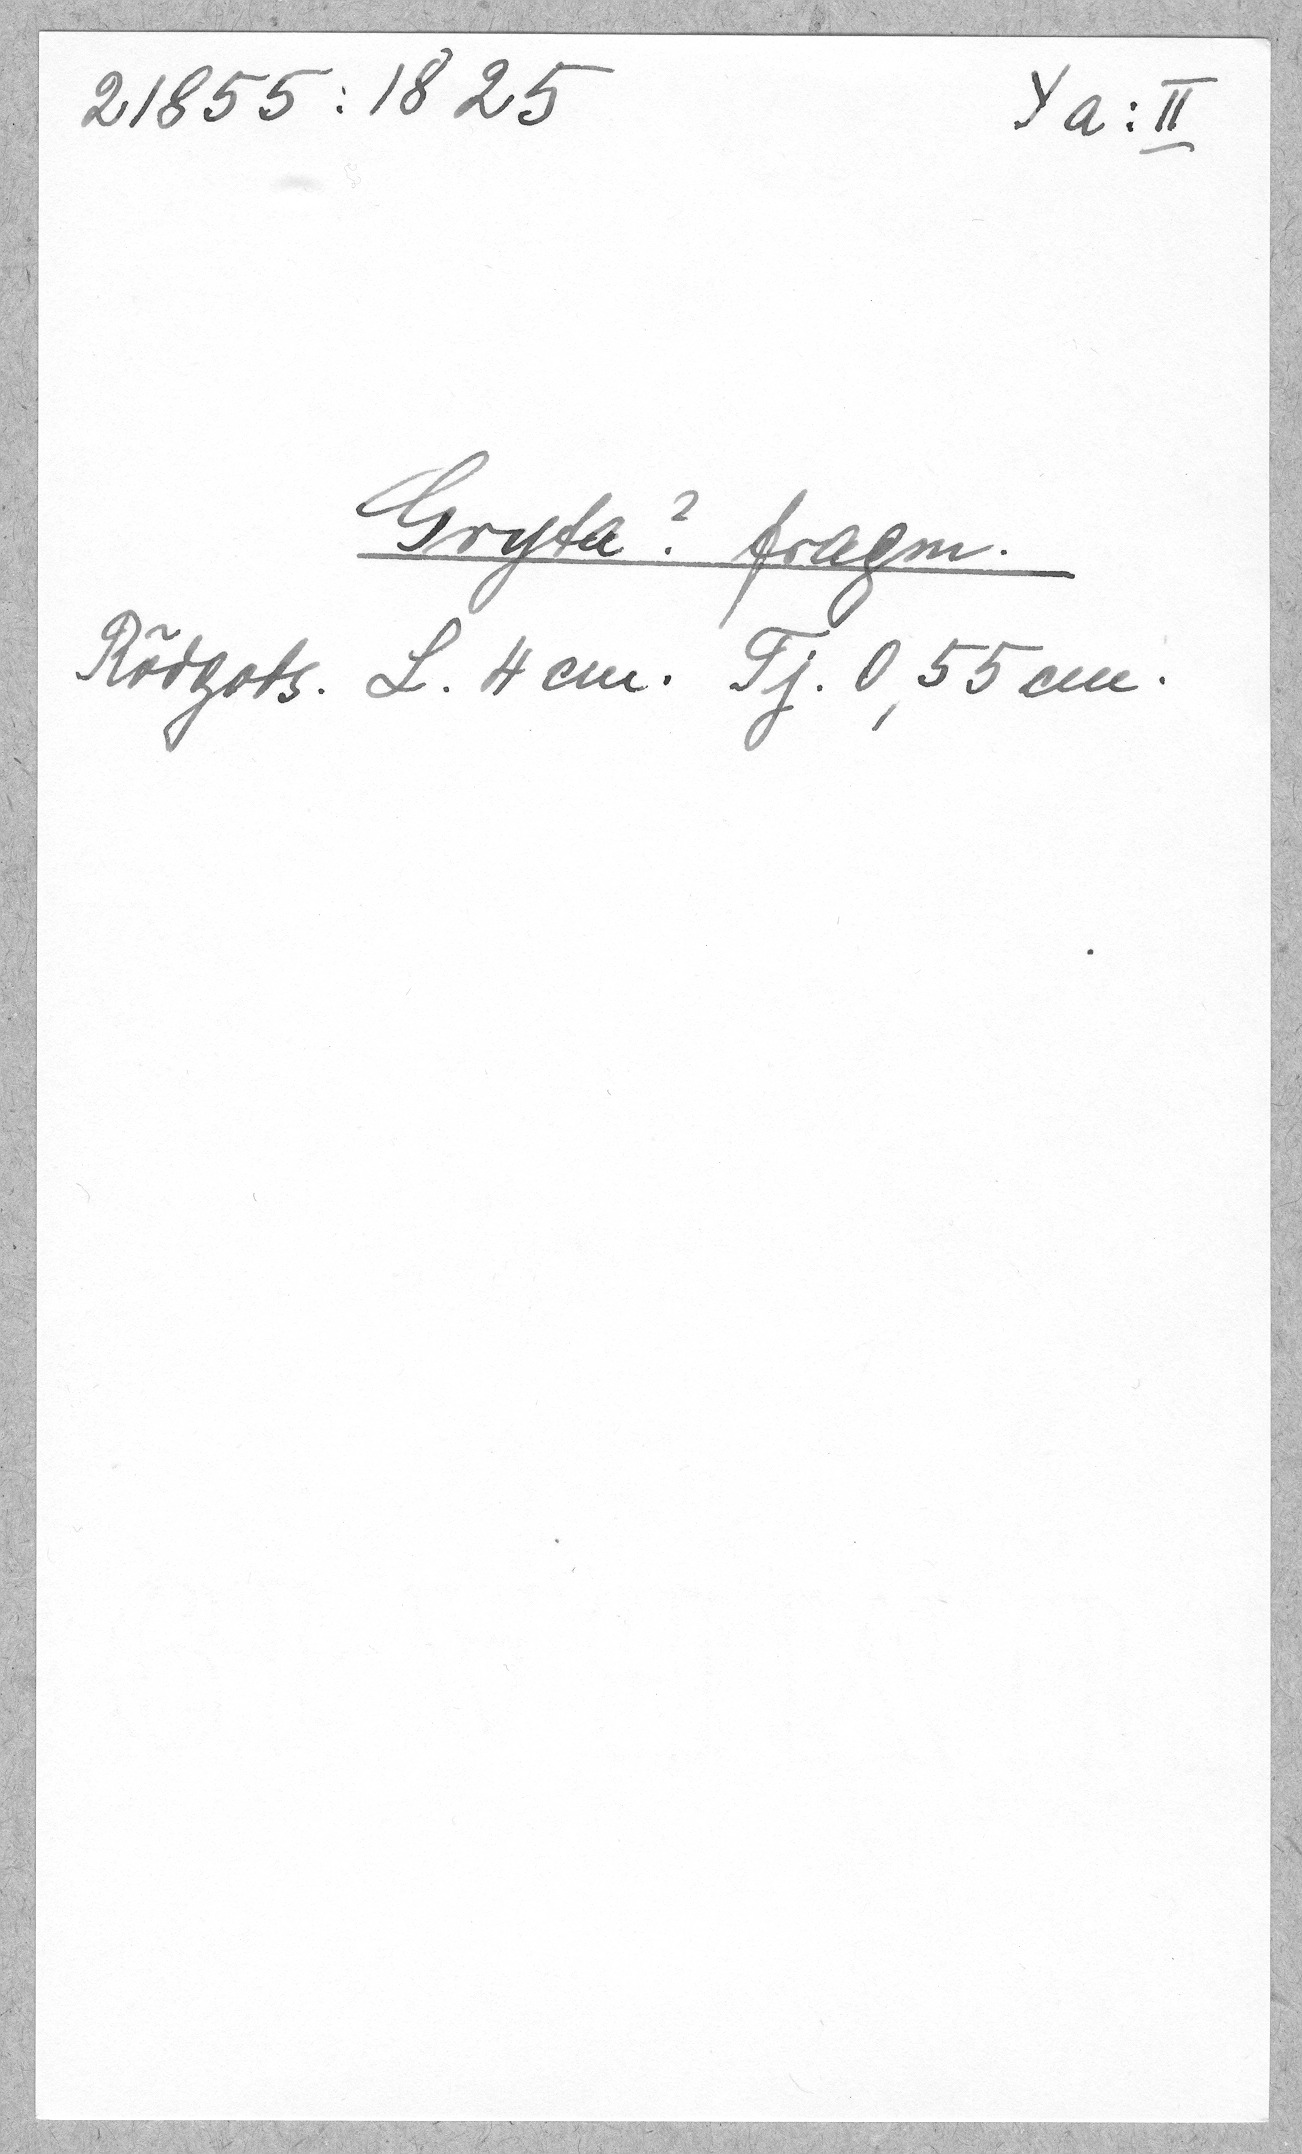 21855:1825 Ya:II
Gryta? fragm.
Rödgods. L. 4 cm. Tj. 0,55 cm.